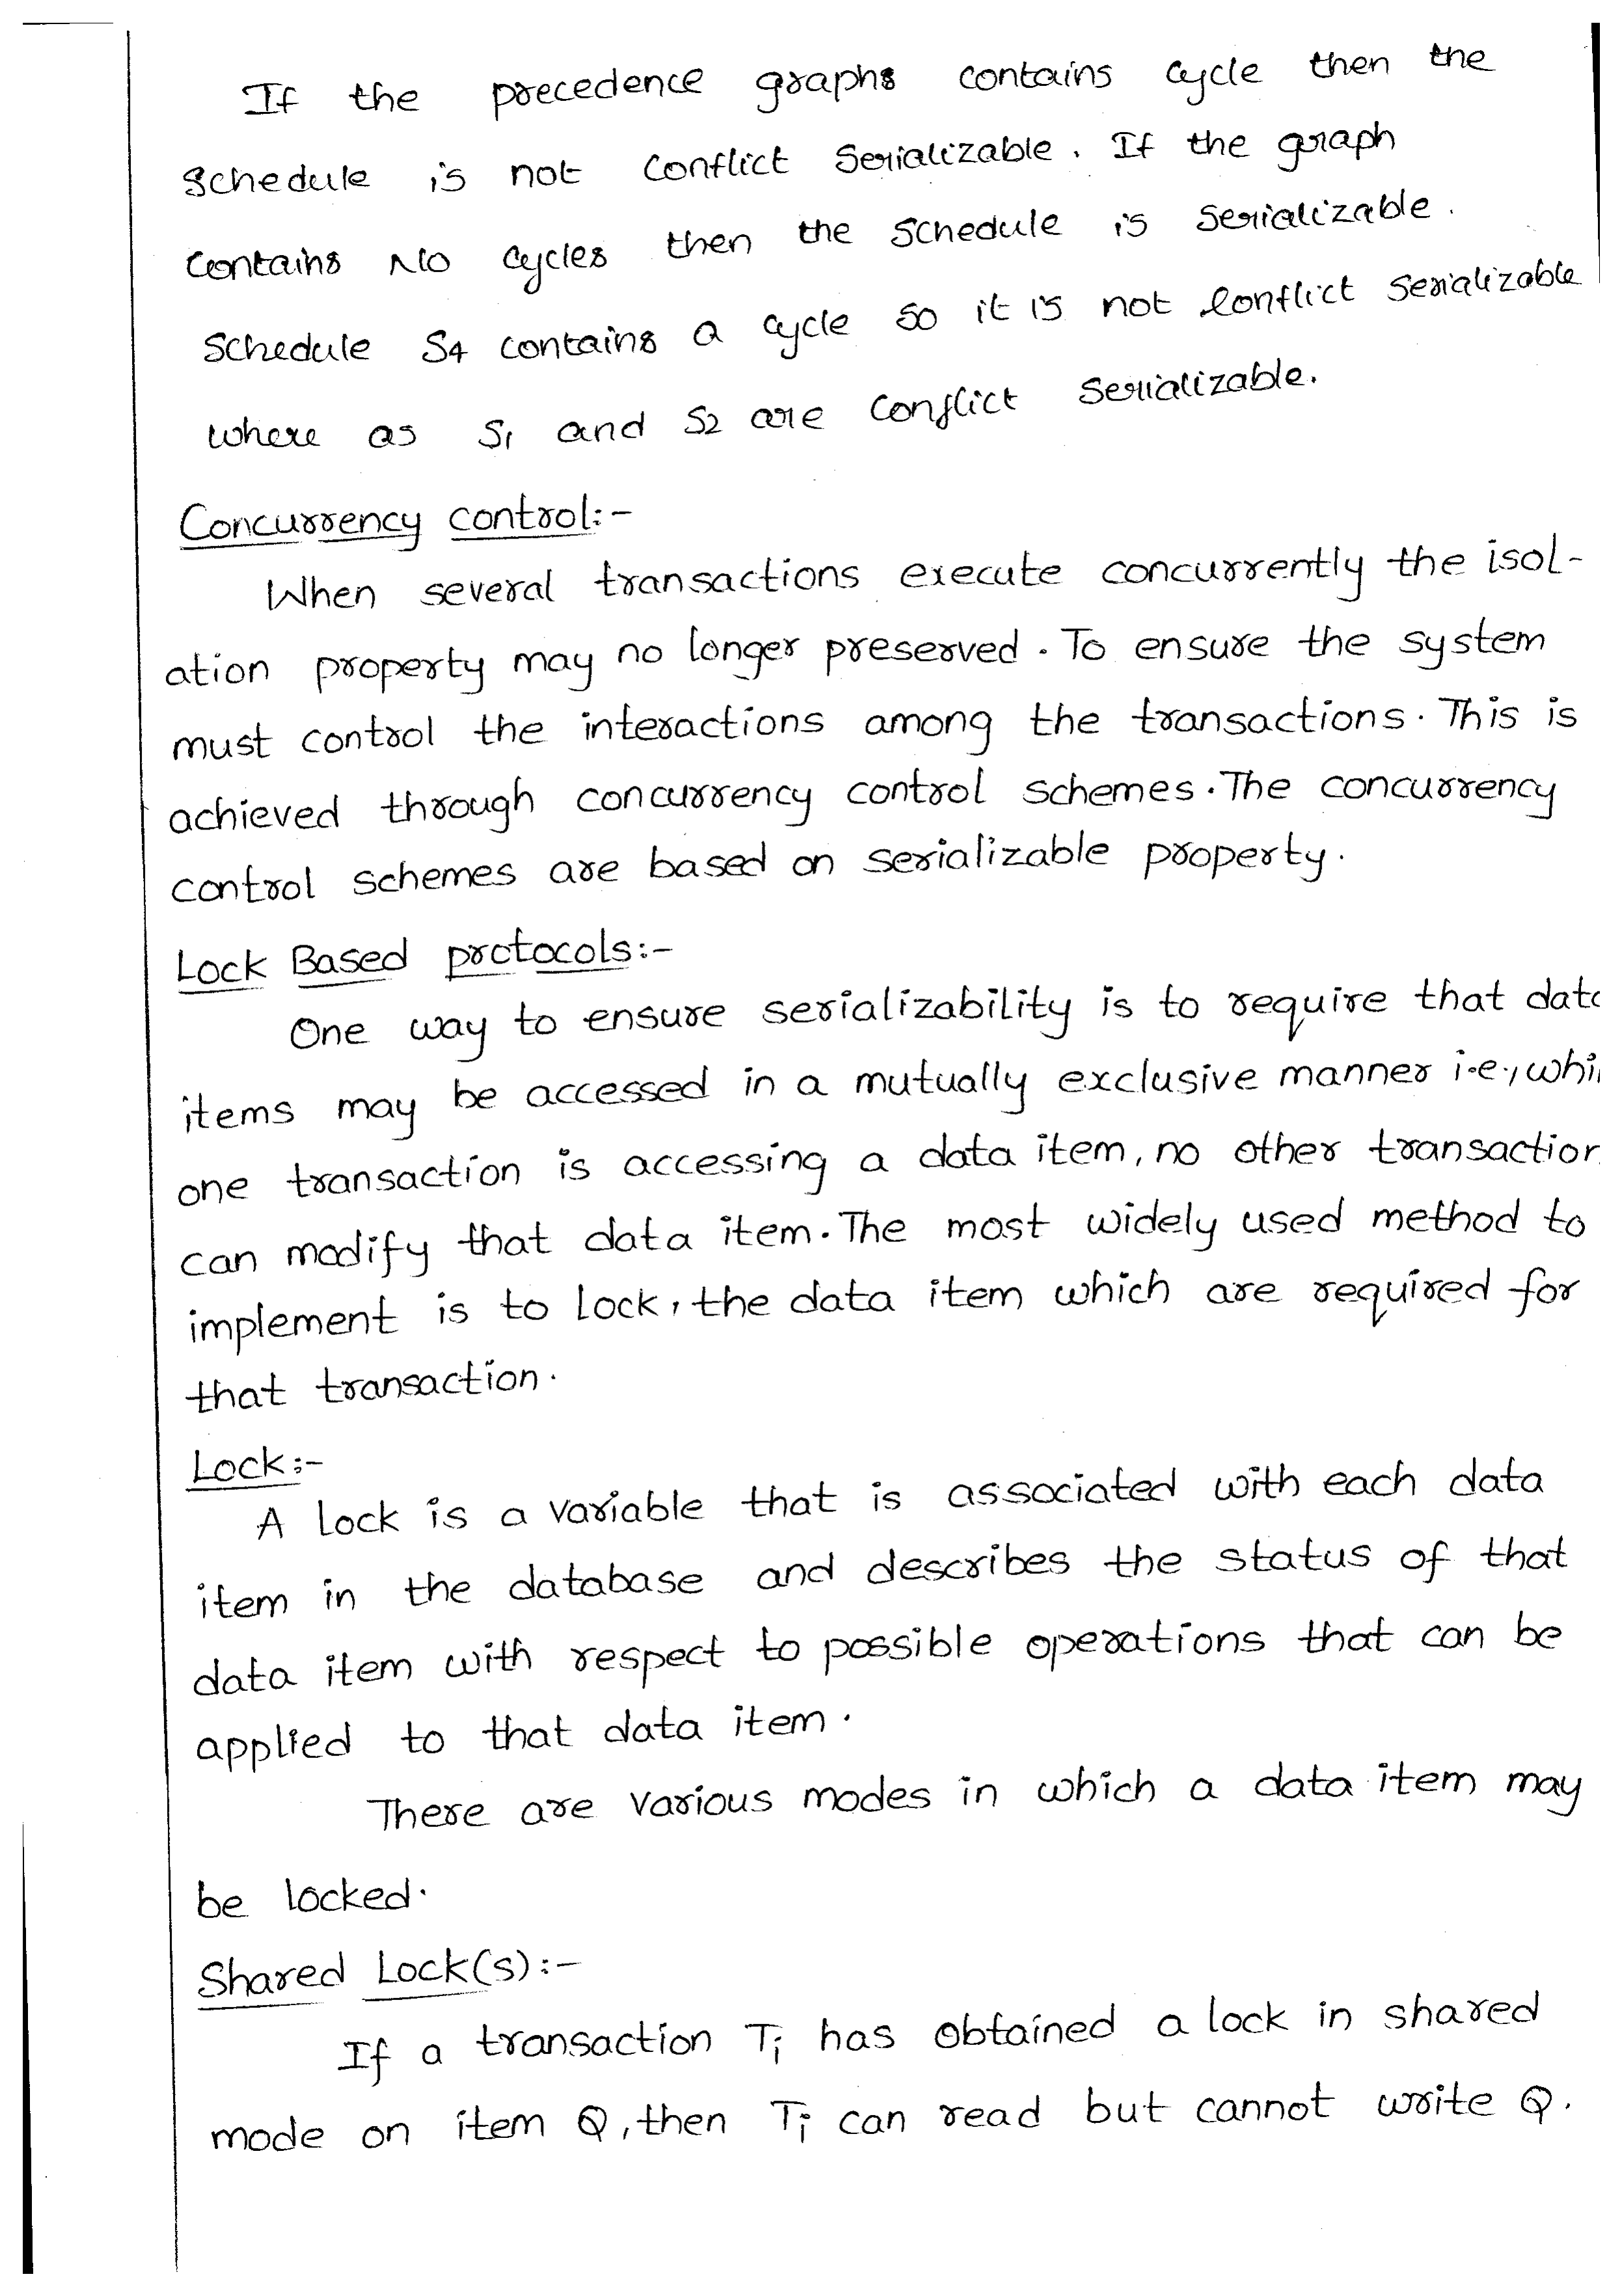 If the precedence graphs contains cycle then the
schedule is not conflict serializable. If the graph
contains No cycles then the schedule is serializable.
Schedule S4 contains a cycle so it is not conflict serializable
where as S1 and S2 are conflict serializable.
Concurrency control:-
When several transactions execute concurrently the isol-
ation property may no longer preserved. To ensure the system
must control the interactions among the transactions. This is
achieved through concurrency control schemes. The concurrency
control schemes are based on serializable property.
Lock Based protocols:-
One way to ensure serializability is to require that data
items may be accessed in a mutually exclusive manner i.e., whi
one transaction is accessing a data item, no other transaction
can modify that data item. The most widely used method to
implement is to lock, the data item which are required for
that transaction.
Lock:-
A lock is a variable that is associated with each data
item in the database and describes the status of that
data item with respect to possible operations that can be
applied to that data item.
There are various modes in which a data item may
be locked.
Shared Lock(s):-
If a transaction Ti has obtained a lock in shared
mode on item Q, then Ti can read but cannot write Q.